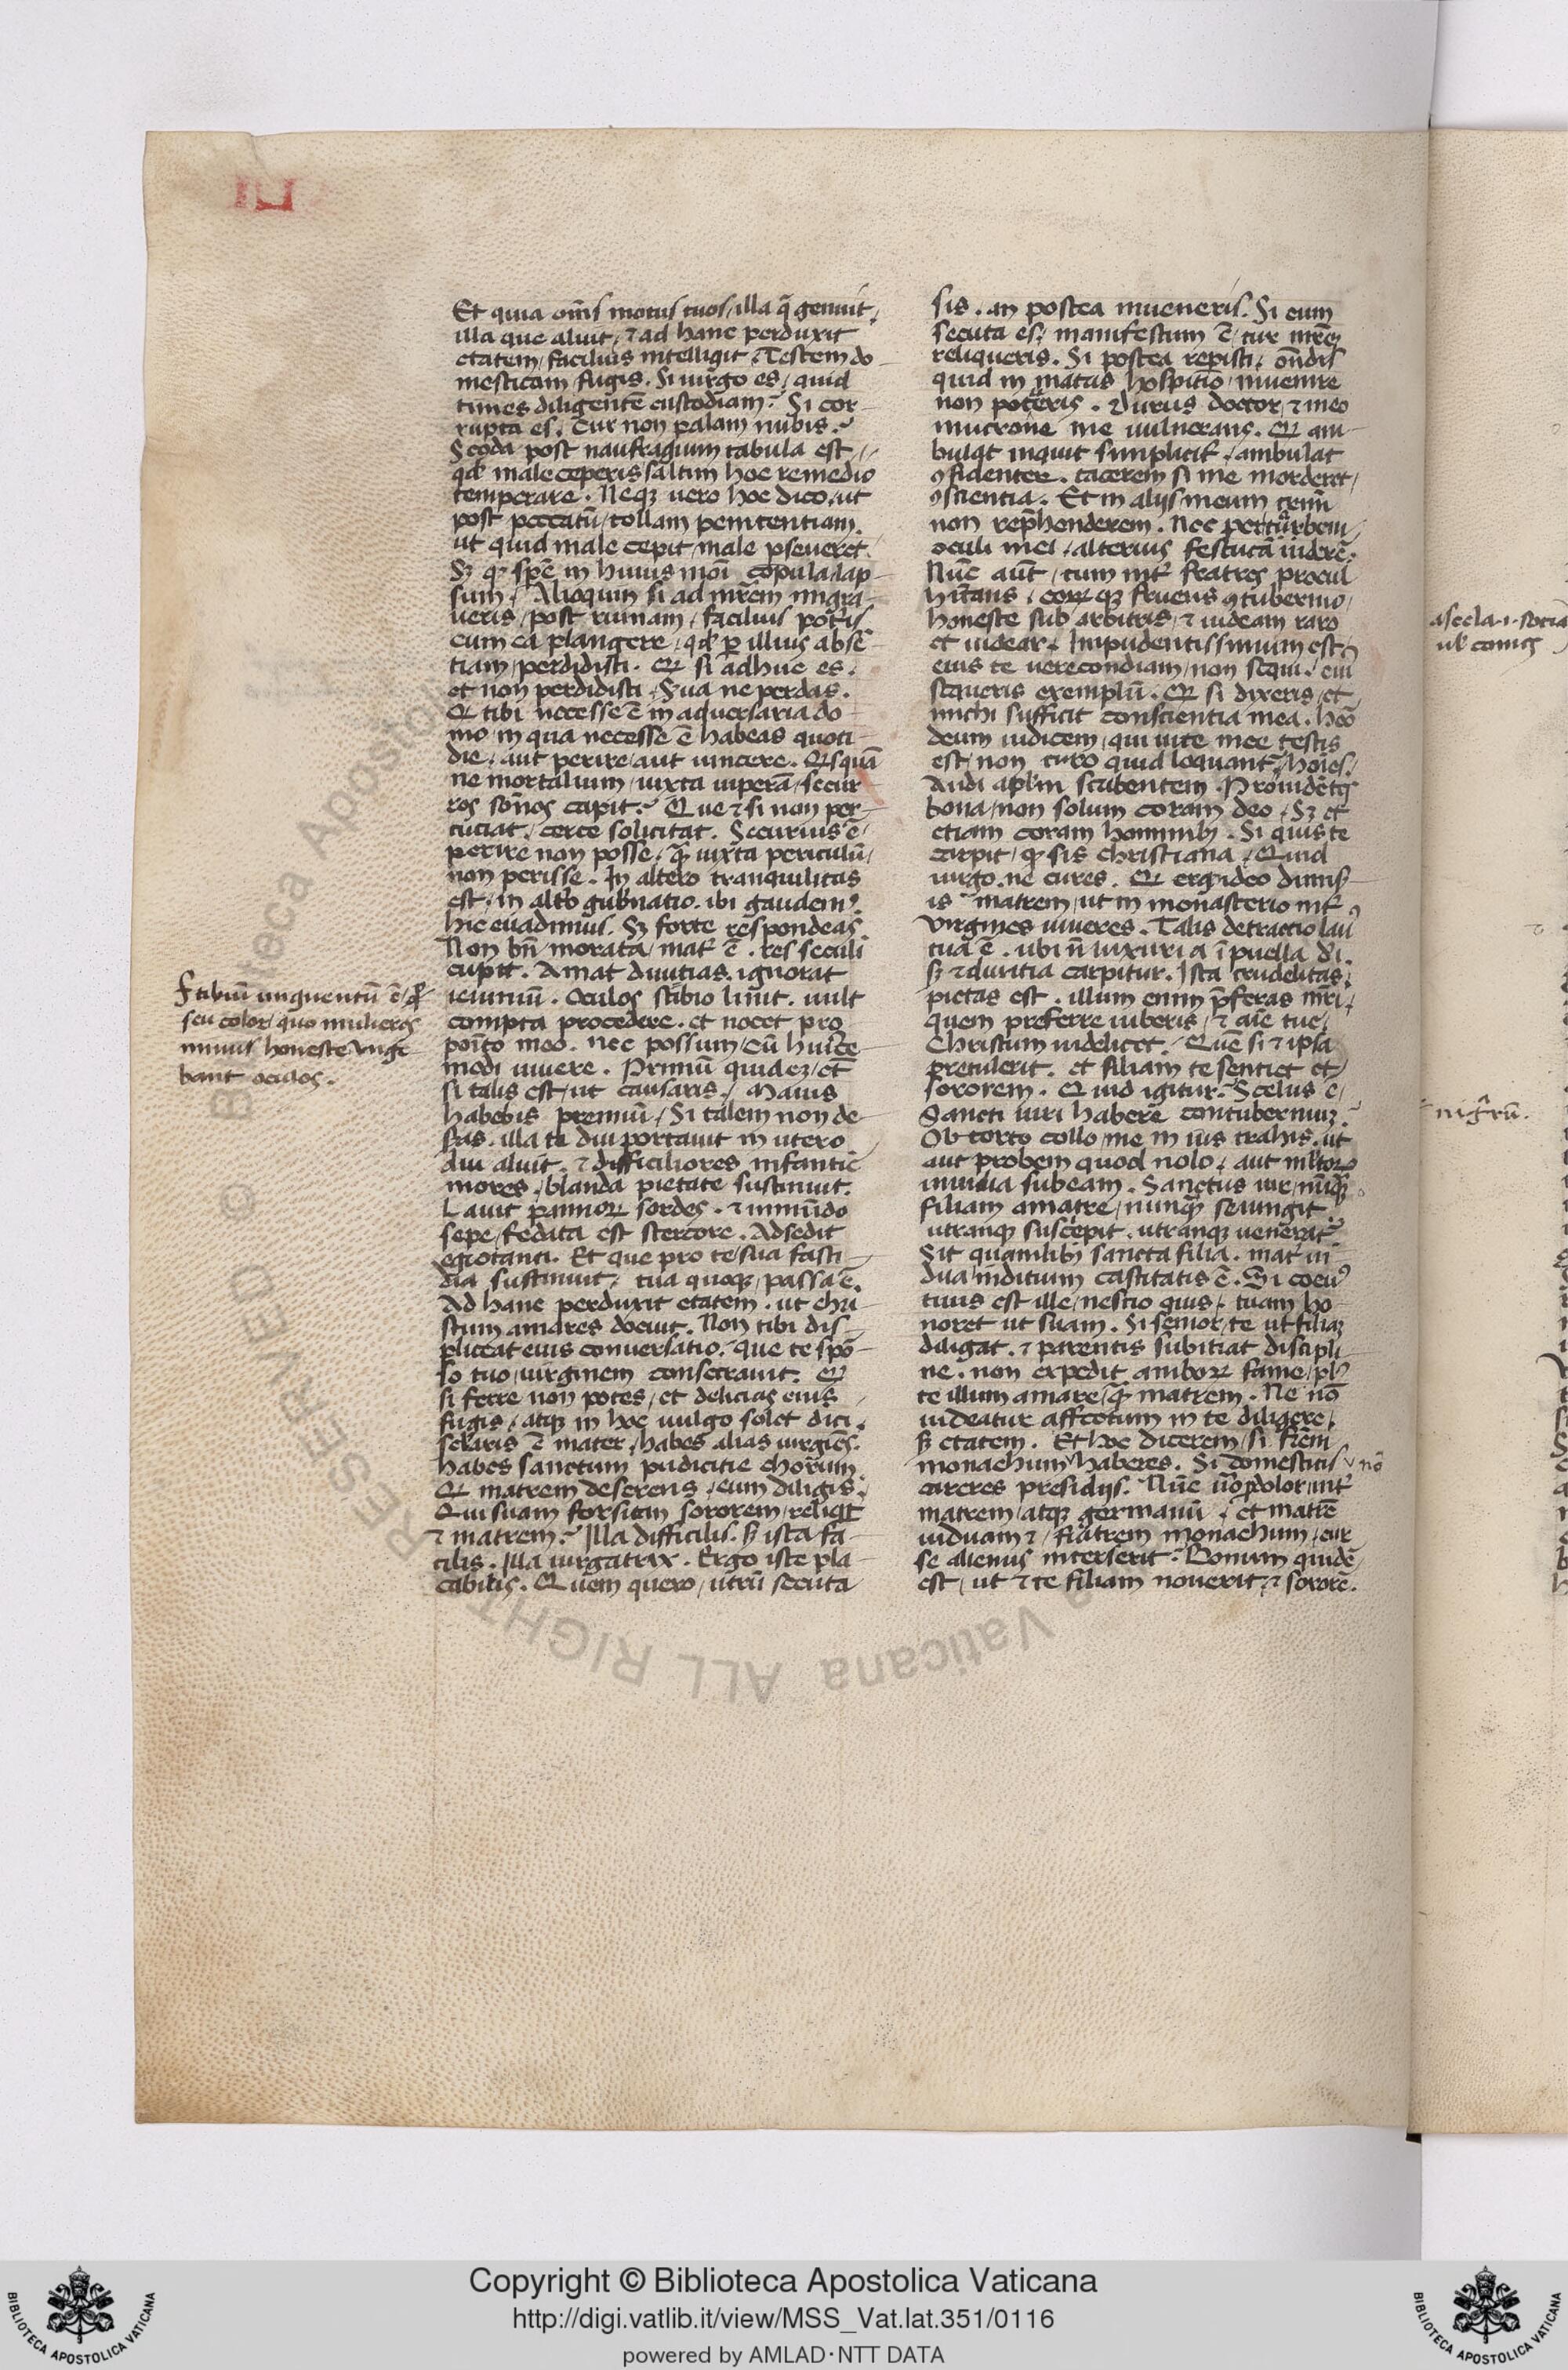 Et quia om̄s motus tuos / illa q̄ genuit,
illa que aluit, ⁊ ad hanc perduxit
etatem, facilius intelligit, Testem do
mesticam fugis. Si uirgo es, quid
times diligentē custodiam? Si cor-
rupta es, cur non palam nubis?
Scd̄a post naufragium tabula est,
qd̓ male ceperis saltim hoc remedio
temperare. Neqꝫ uero hoc dico, ut
post peccatū, tollam penitentiam.
ut quid male cepit, male pseueret.
Sꝫ q̓ spē in huius mōi copula lap-
sum. Alioquin si ad mr̄em migra-
ueris, post ruinam, facilius pot̓is
cum ea plangere, qd̓ ꝑ illius absē
tiam, perdidisti. Qꝛ si adhuc es,
et non perdidisti, Sua ne perdas.
Qͥ tibi necesse ē in aduersaria do
mo, in qua necesse ē habeas quoti-
die, aut perire aut uincere. Qͥsquā
ne mortalium, iuxta uiperā, secur-
ros som̄os capit? Que ⁊ si non per-
cuciat, certe solicitat. Securius ē,
perire non posse, q̄ iuxta periculū,
non perisse. In altero tranquilitas
est, in alt̓o gub̓natio. ibi gaudem̓,
hic euadimus. Sꝫ forte respondeas.
Non bn̄ morata, mat̓ ē. res seculi
cupit. Amat diuitias, ignorat
ieiuniū. Oculos stibio linit. uult
compta procedere. et nocet pro
poīto meo. nec possum, cū huiꝯce
modi uiuere. Primū quideꝫ, et̄
si talis est, ut causaris, Maius
habebis premiū, Si talem non de-
seras. illa te diu portauit in utero
diu aluit. ⁊ difficiliores infantie
mores, blanda pietate sustinuit.
Lauit pannoꝝ sordes. ⁊ inmūdo
sepe, fedata est stercore. Adsedit
egrotanti. Et que pro te, sua fasti-
dia sustinuit, tua quoqꝫ, passa ē.
Ad hanc perduxit etatem. ut chri-
stum amares docuit. Non tibi dis-
pliceat eius conuersatio, que te spō-
so tuo, uirginem consecrauit. Qꝛ
si ferre non potes, et delicias eius
fugis, atqꝫ in hoc uulgo solet dici,
sclaris ē mater, habes alias uirgiēs.
habes sanctum pudicitie chorum.
Qͥ matrem deserens, eum diligis,
Qui suam forsitan sororem, reliqͥt
⁊ matrem? Illa difficilis. sꝫ ista fa-
cilis. Illa iurgatrix. Ergo iste pla-
cabilis. Quem quero, utrū secuta
stibiū unguentū ē, uel
seu color, quo mulieres
minus honeste unge
bant oculos.
sis. an postea inueneris. Si eum
secuta es, manifestum ē, cur mr̄eꝫ
reliqueris. Si postea repisti, on̄dis
quid in matris hospitio, inuenire
non poteris. Durus doctor, ⁊ meo
mucrone me uulnerans. Qͥ am-
bulat inquit simplicit̓, ambulat
ꝯfidenter. tacerem si me morderet,
ꝯscientia. Et in alijs meum crim̄
non rep̄henderem. Nec per trabem
oculi mei, alterius festucā uiderē.
Nūc aūt, cum int̓ fratres procul
hītans, eoꝝqꝫ fruens ꝯtubernio,
honeste sub arbitris, ⁊ uideam raro
et uidear, Impudentissimum est,
eius te uerecondiam, non sequi, cui̓
sequeris exemplū. Qꝛ si dixeris, et
michi sufficit conscientia mea. heō
deum iudicem, qui uite mee testis
est, non curo quid loquant̓, hoīes,
Audi ap̄lm scribentem. Prouidētes
bona, non solum coram deo, Sꝫ et
etiam coram hominibꝫ. Si quis te
carpit, q̓ sis christiana, Quid
uirgo. ne cures. Qꝛ ergo ideo dimis
is matrem, ut in monasterio int̓
uirgines uiueres. Talis detractio lau̓
tua ē. ubi n̄ luxuria ī puella d̓i,
sꝫ ⁊ duritia carpitur. Ista crudelitas,
pietas est. illum enim p̄feras mr̄i,
quem preferre iuberis, ⁊ aīe tue,
Christum uidelicet. Quē si ⁊ ipsa
pretulerit. et filiam te sentiet et
sororem. Quid igitur? Scelus ē,
Sancti uiri habere contuberniuꝫ?
Obtorto collo, me in ius trahis. ut
aut probem quod nolo, aut mltoꝝ
inuidia subeam. Sanctus uir, nūqͣꝫ
filiam a matre, nunqͣꝫ seiungit.
utranqꝫ suscepit, utranqꝫ uenerat̓.
Sit quamlibꝫ sancta filia. mat̓ ui
dua inditium castitatis ē. Si coeu̓
tuus est ille, nescio quis, tuam ho
noret ut suam. Si senior, te ut filiaꝫ
diligat. ⁊ parentis subitiat discipli-
ne. non expedit amboꝝ fame, pl̓
te illum amare, q̄ matrem. Ne nō
uideatur affectum in te diligere,
sꝫ etatem. Et hoc dicerem, si fr̄em
monachum haberes. Si domesticis nō
careres presidijs. Nūc u̓o pdolor, int̓
matrem, atqꝫ germanū, et matrē
uiduam ⁊, fratrem monachum, cur
se alienus interserit? Bonum quidē
est, ut ⁊ te filiam nouerit, ⁊ sororē.
asecla .i. socia
ul̓ comes
nigrū.
Copyright © Biblioteca Apostolica Vaticana
http://digi.vatlib.it/view/MSS_Vat.lat.351/0116
powered by AMLAD·NTT DATA
BIBLIOTECA APOSTOLICA VATICANA
BIBLIOTECA APOSTOLICA VATICANA